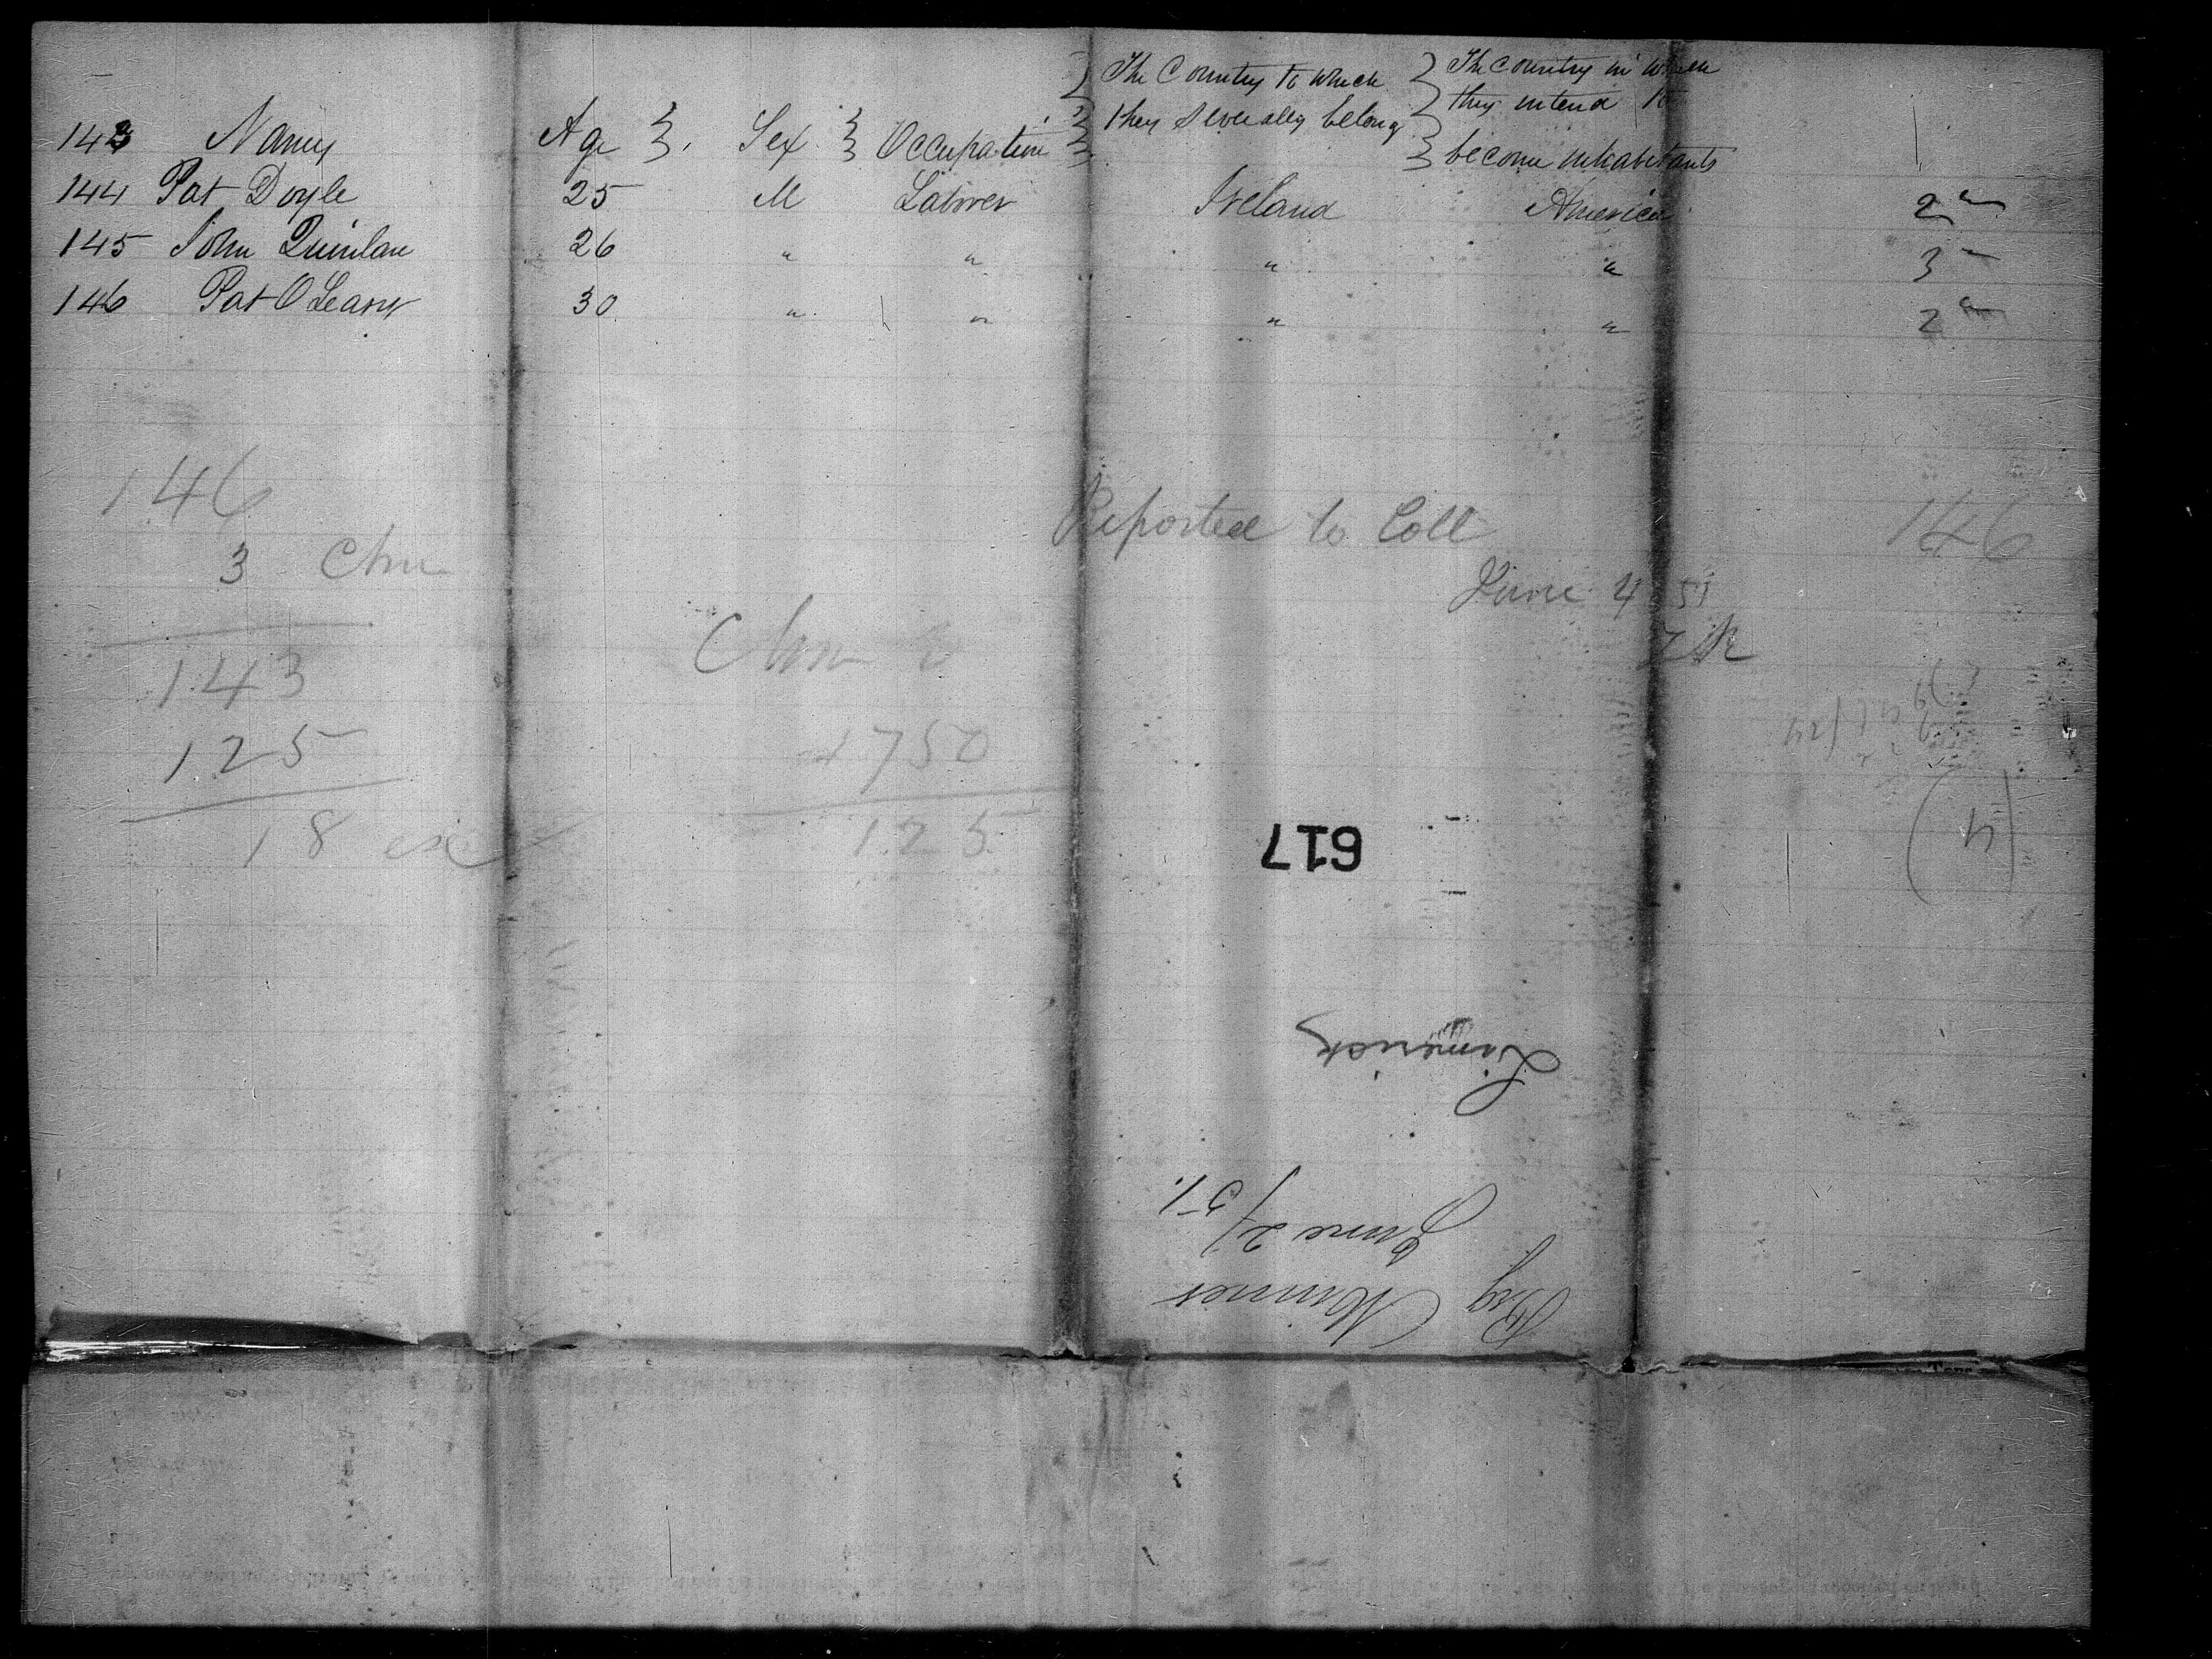 The Country to which } The Country in which
they Severally belong } they intend to
143 Names Age } Sex } Occupation } become inhabitants
144 Pat Doyle 25 M Laborer Ireland America 2
145 John Quinlan 26 " " " " 3
146 Pat O Leary 30 " " " " 2
146
3 Chn
143
125
18 ex
Chn
1750
125
Reported to Coll
June 4 51
146
617
(4)
Brig Minner
June 2/51.
Limerick